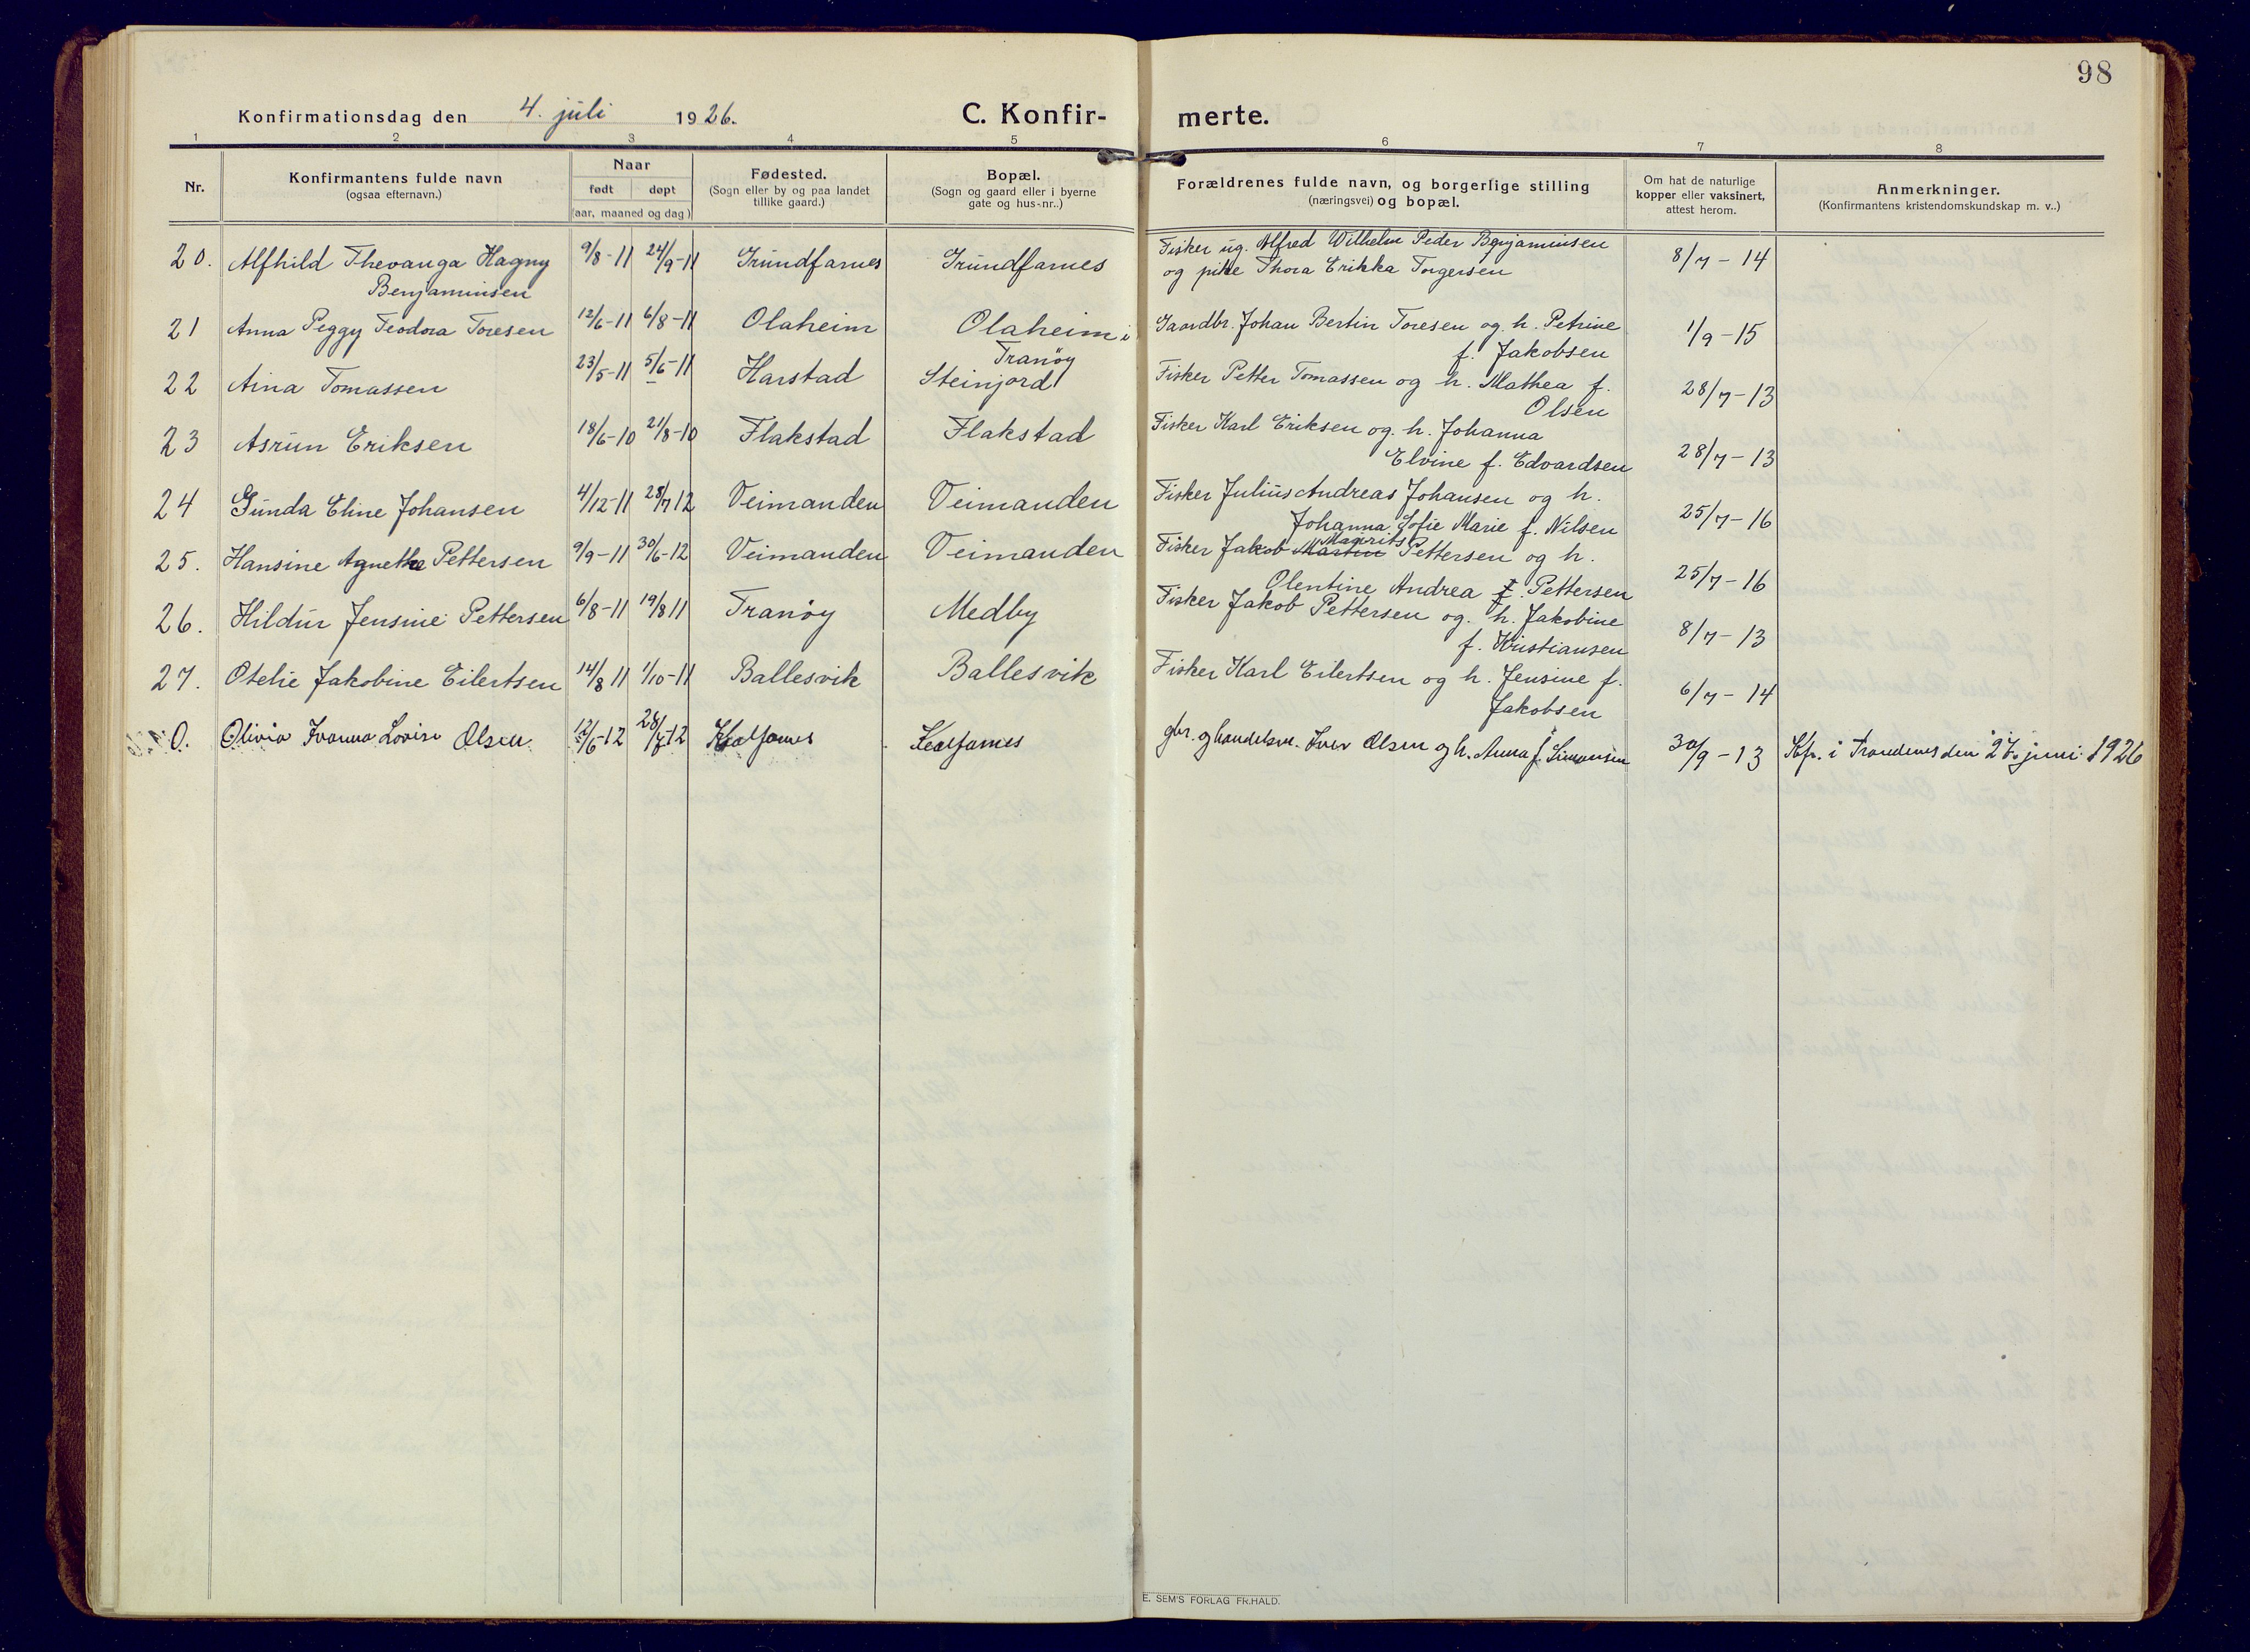 98
Konfirmationsdag den 4. juli 1926.
C. Konfir-
merte.
1 2 3 4 5 6 7 8
Nr.
Konfirmantens fulde navn
(ogsaa efternavn.)
Naar
født døpt
(aar, maaned og dag)
Fødested.
(Sogn eller by og paa landet
tillike gaard.)
Bopæl.
(Sogn og gaard eller i byerne
gate og hus-nr..)
Forældrenes fulde navn, og borgerlige stilling
(næringsvei) og bopæl.
Om hat de naturlige
kopper eller vaksinert,
attest herom.
Anmerkninger.
(Konfirmantens kristendomskundskap m. v..)
20. Alfhild Thevanga Hagny 9/8-11 24/9-11 Grundfarnes Grundfarnes Fisker ug. Alfred Wilhelm Peder Benjaminsen 8/7-14
Benjaminsen og pike Thora Erikka Torgersen
21 Anna Peggy Teodora Toresen 12/6-11 6/8-11 Olaheim Olaheim i Gaardbr. Johan Bertin Toresen og h. Petrine 1/9-15
Tranöy f. Jakobsen
22 Aina Tomassen 23/5-11 5/6-11 Harstad Steinjord Fisker Petter Tomassen og h. Mathea f. 28/7-13
Olsen
23 Asrun Eriksen 18/6-10 21/8-10 Flakstad Flakstad Fisker Karl Eriksen og h. Johanna 28/7-13
Elvine f. Edvardsen
24 Gunda Eline Johansen 4/12-11 28/7 12 Veimanden Veimanden Fisker Julius Andreas Johansen og h. 25/7-16
Johanna Sofie Marie f. Nilsen
25. Hansine Agnethe Pettersen 9/9-11 30/6-12 Veimanden Veimanden Fisker Jakob Martin Maurits Pettersen og h. 25/7-16
Olentine Andrea f. Pettersen
26. Hildur Jensine Pettersen 6/8-11 19/8 11 Tranöy Medby Fisker Jakob Pettersen og h. Jakobine 8/7-13
f. Kristiansen
27. Otelie Jakobine Eilertsen 14/8 11 1/10-11 Ballesvik Ballesvik Fisker Karl Eilertsen og h. Jensine f. 6/7-14
Jakobsen
0. Olivia Ivanna Lovise Olsen 12/6-12 28/7-12 gbr. og handelsm. Iver Olsen og h. Anna f. Simonsen 30/9-13 Kfr. i Trondenes den 27. juni 1926
E. SEM'S FORLAG FR.HALD.